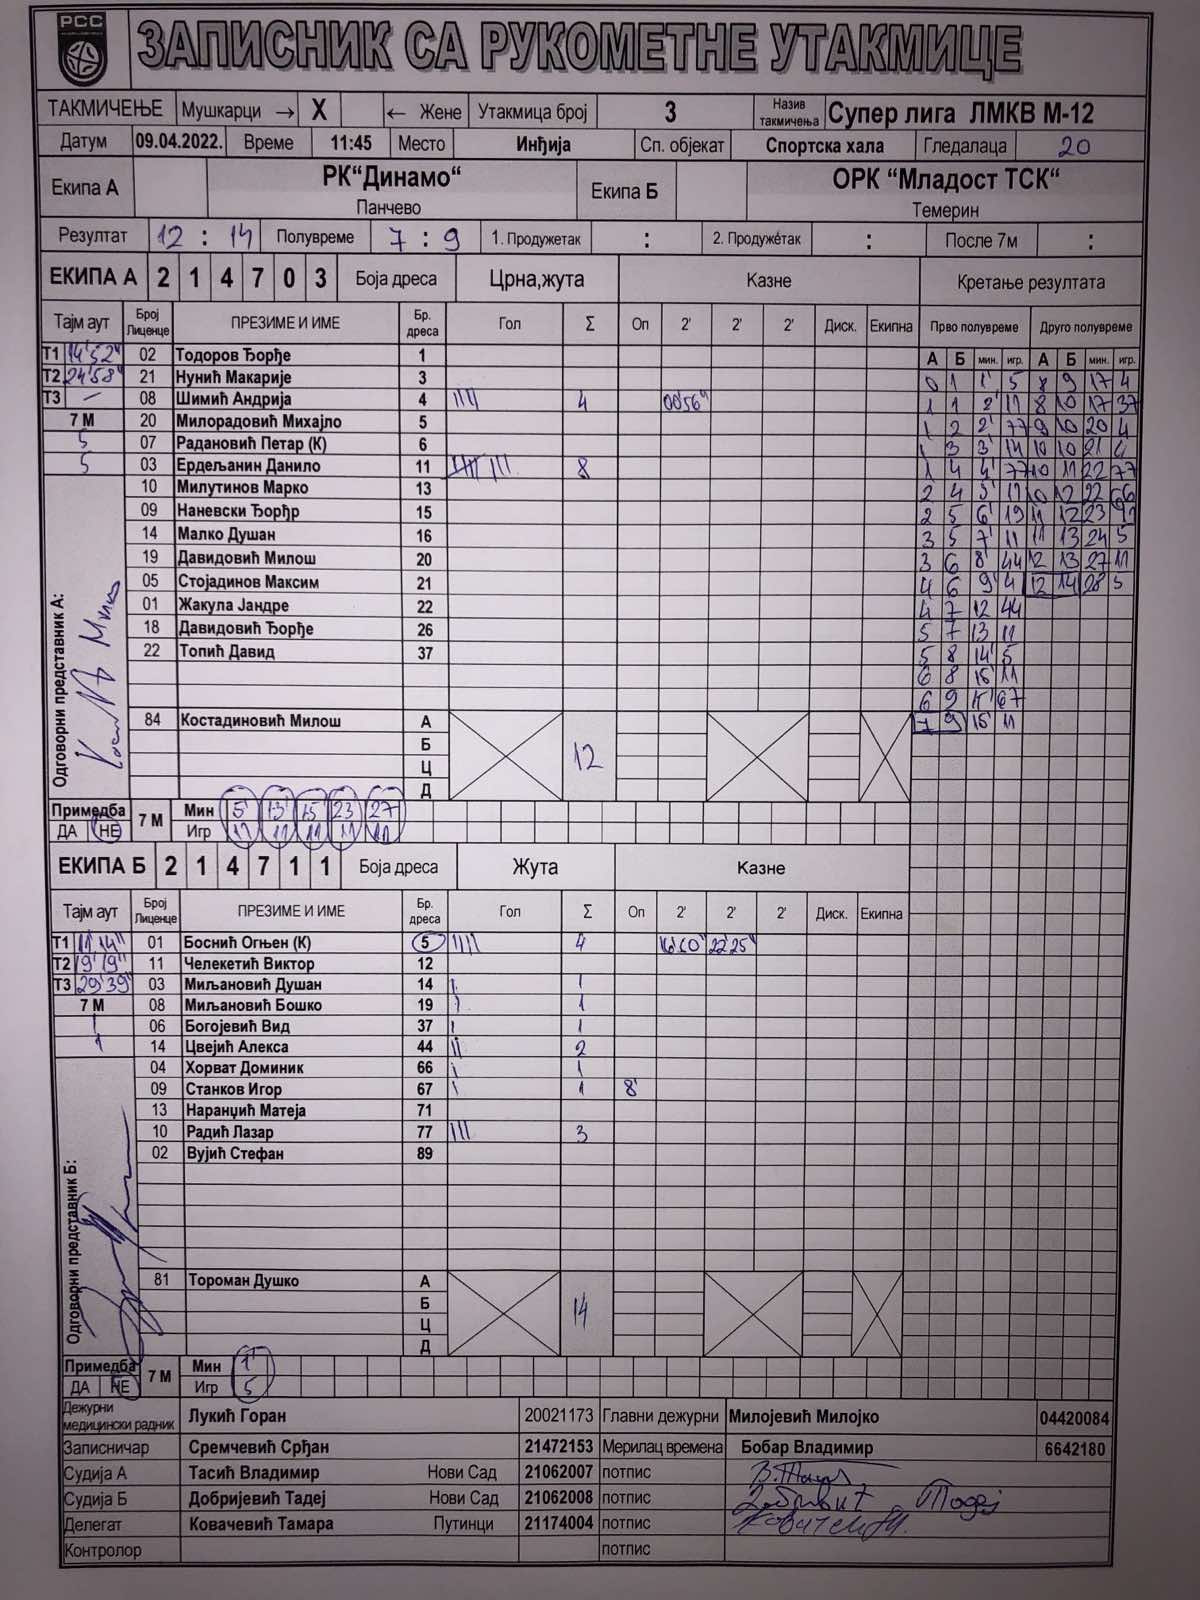 РСС
ЗАПИСНИК СА РУКОМЕТНЕ УТАКМИЦЕ
ТАКМИЧЕЊЕ Мушкарци → X ← Жене Утакмица број 3 Назив такмичења Супер лига ЛМКВ М-12
Датум 09.04.2022. Време 11:45 Место Инђија Сп. објекат Спортска хала Гледалаца 20
Екипа А РК“Динамо“ Панчево Екипа Б ОРК “Младост ТСК“ Темерин
Резултат 12 : 14 Полувреме 7 : 9 1. Продужетак : 2. Продужетак : После 7м :
ЕКИПА А 2 1 4 7 0 3 Боја дреса Црна,жута Казне Кретање резултата
Тајм аут Број Лиценце ПРЕЗИМЕ И ИМЕ Бр. дреса Гол Σ Оп 2' 2' 2' Диск. Екипна Прво полувреме Друго полувреме
А Б мин. игр. А Б мин. игр.
Т1 14'52" 02 Тодоров Ђорђе 1
0 1 1' 5 8 9 17 4
Т2 24'58" 21 Нунић Макарије 3
Т3 — 08 Шимић Андрија 4 |||| 4 00'56"
1 1 2' 11 8 10 17 37
7 М 20 Милорадовић Михајло 5
1 2 2' 77 9 10 20 4
5 07 Радановић Петар (К) 6
1 3 3' 14 10 10 21 4
5 03 Ердељанин Данило 11 |||| ||| 8
1 4 4' 77 10 11 22 77
10 Милутинов Марко 13
2 4 5' 11 10 12 22 66
09 Наневски Ђорђр 15
2 5 6' 19 11 12 23
14 Малко Душан 16
3 5 7' 11 11 13 24 5
19 Давидовић Милош 20
3 6 8' 44 12 13 27 11
05 Стојадинов Максим 21
4 6 9' 4 12 14 28 5
01 Жакула Јандре 22
4 7 12 44
18 Давидовић Ђорђе 26
5 7 13 11
22 Топић Давид 37
5 8 14' 5
6 8 15' 11
6 9 15' 67
7 9 15' 11
Одговорни представник А:
84 Костадиновић Милош А
Б
12
Ц
Д
Примедба ДА НЕ 7 М Мин 5' 13' 15' 23 27
Игр 11 11 11 11 11
ЕКИПА Б 2 1 4 7 1 1 Боја дреса Жута Казне
Тајм аут Број Лиценце ПРЕЗИМЕ И ИМЕ Бр. дреса Гол Σ Оп 2' 2' 2' Диск. Екипна
Т1 11'14" 01 Боснић Огњен (К) 5 |||| 4 22'25"
Т2 19'19" 11 Челекетић Виктор 12
Т3 29'39" 03 Миљановић Душан 14 | 1
7 М 08 Миљановић Бошко 19 | 1
1 06 Богојевић Вид 37 | 1
1 14 Цвејић Алекса 44 || 2
04 Хорват Доминик 66 | 1
09 Станков Игор 67 | 1 8'
13 Наранџић Матеја 71
10 Радић Лазар 77 ||| 3
02 Вујић Стефан 89
Одговорни представник Б:
81 Тороман Душко А
Б
14
Ц
Д
Примедба ДА НЕ 7 М Мин 1'
Игр 5
Дежурни медицински радник Лукић Горан 20021173 Главни дежурни Милојевић Милојко 04420084
Записничар Сремчевић Срђан 21472153 Мерилац времена Бобар Владимир 6642180
Судија А Тасић Владимир Нови Сад 21062007 потпис В.Тасић
Судија Б Добријевић Тадеј Нови Сад 21062008 потпис Добријевић Тадеј
Делегат Ковачевић Тамара Путинци 21174004 потпис
Контролор потпис